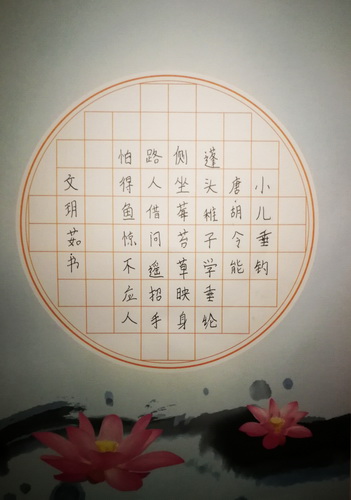 小儿垂钓
唐·胡令能
蓬头稚子学垂纶
侧坐莓苔草映身
路人借问遥招手
怕得鱼惊不应人
文玥茹书